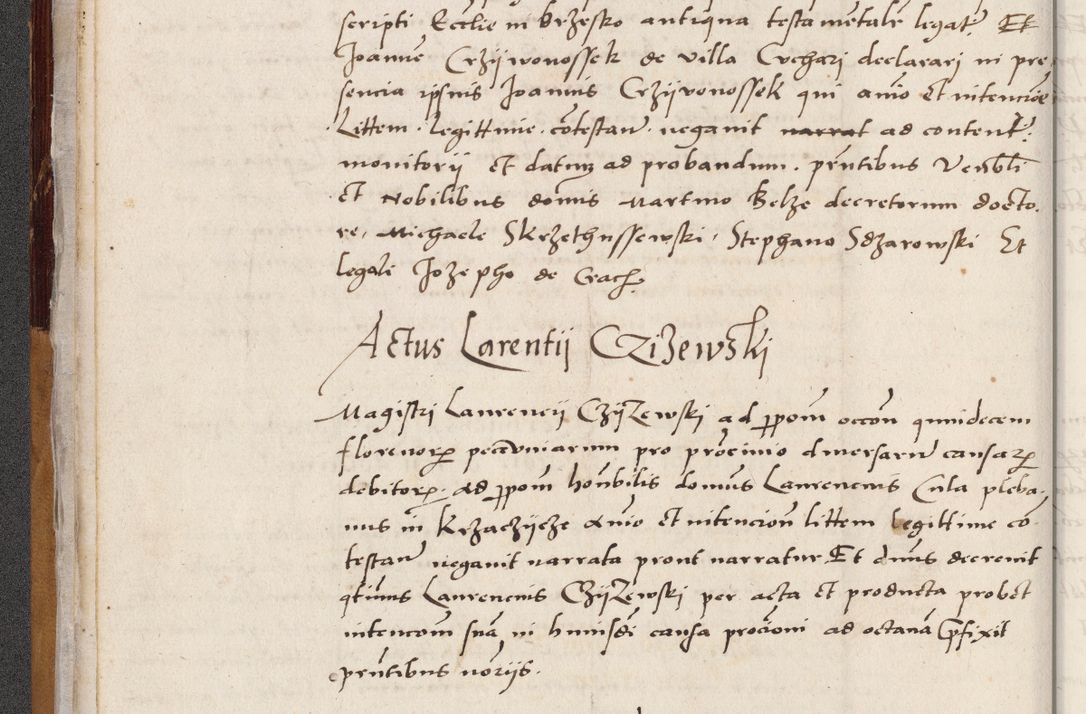 scripti Ecclie in Brzesko antiqua testamentale legat. Et
Joanne Crzijwonossek de villa Cvchari declarari in pre
sencia ipsius Joannis Crzijvonossek qui anio et intencioe
Littem legittime cotestan negavit narrat ad content
monitorij et datum ad probandum. pntibus Venbli
et Nobilibus domis Martino Belze decretorum docto.
re, Michaele Skrzethussewski, Stephano Sdzarowski Et
legali Jozepho de Crach.
Actus Larentij Czizewski
Magistri Laurencij Czijzewski ad ppom occon quindecem
florenor pecuniarum pro procinio diversarum causar
debitor. ad ppom honbilis domus Laurencius Cula pleba.
nus in Krzaczijcze anio et intencion littem legittime co
testan negavit narrata prout narratur Et dnus decrevit
qtinus Laurencius Czijzewski per acta et producta probet
intencom sua in huiusdi causa procioni ad octava pfixit
pntibus noriis.